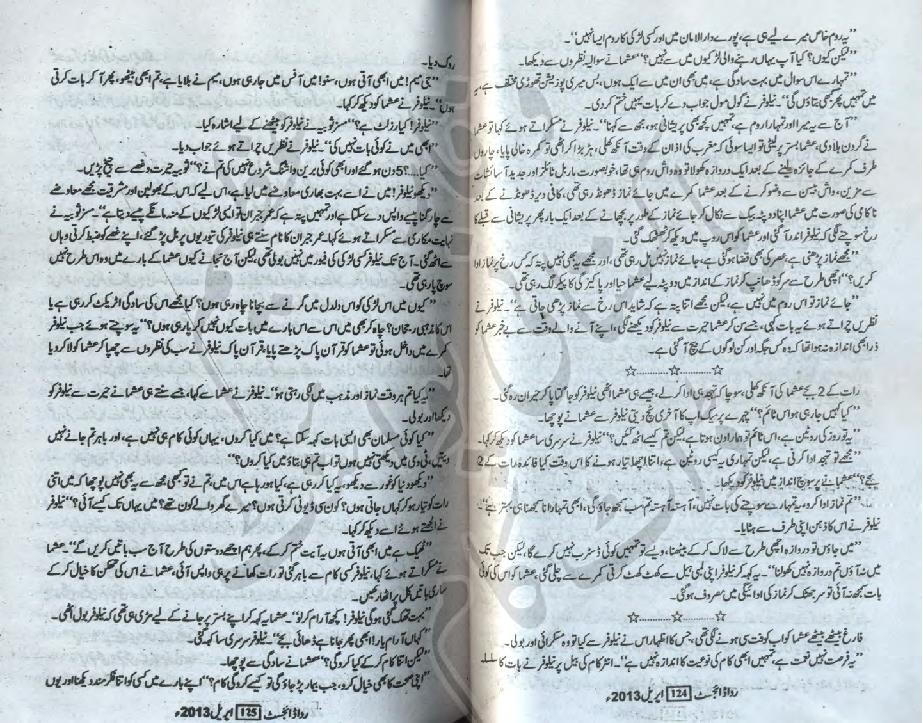 ”یہ روم خاص میرے لیے ہی ہے، پورے دارالامان میں اور کسی لڑکی کا روم ایسا نہیں“۔
”لیکن کیوں؟ کیا آپ یہاں رہنے والی لڑکیوں میں سے نہیں؟“ عشما نے سوالیہ نظروں سے دیکھا۔
”تمہارے اس سوال میں بہت سادگی ہے، میں بھی ان میں سے ایک ہوں، بس میری پوزیشن تھوڑی مختلف ہے،
میں تمہیں پھر کبھی بتاؤں گی“۔ نیلوفر نے گول مول جواب دے کر بات ہی ختم کر دی۔
”آج سے یہ میرا اور تمہارا روم ہے، تمہیں کچھ بھی پریشانی ہو، مجھ سے کہنا“۔ نیلوفر نے مسکراتے ہوئے کہا تو عشما
نے گردن ہلا دی، عشما بستر پر لیٹی تو ایسا سوئی کہ مغرب کی اذان کے وقت آنکھ کھلی، ہڑبڑا کر اٹھی تو کمرہ خالی پایا، چاروں
طرف کمرے کے جائزہ لینے کے بعد ایک دروازہ کھولا تو وہ واش روم ہی تھا، خوبصورت ماربل ٹائلز اور جدید آسائشات
سے مزین، واش بیسن سے وضو کرنے کے بعد عشما کمرے میں جائے نماز ڈھونڈ رہی تھی، کافی دیر ڈھونڈنے کے بعد
ناکامی کی صورت میں عشما اپنا دوپٹہ بیگ سے نکال کر جائے نماز کے طور پر بچھانے کے بعد ایک بار پھر پریشانی سے قبلے کا
رخ سوچنے لگی کہ نیلوفر اندر آ گئی اور عشما کو اس روپ میں دیکھ کر ٹھٹھک گئی۔
”مجھے نماز پڑھنی ہے، عصر کی بھی قضا ہو گئی ہے، جائے نماز نہیں مل رہی تھی، اور مجھے یہ بھی نہیں پتہ کہ کس رخ پر نماز ادا
کریں؟“ اچھی طرح سے سر کو ڈھانپ کر نماز کے انداز میں دوپٹہ لیے عشما حیا اور پاکیزگی کا پیکر لگ رہی تھی۔
”جائے نماز تو اس روم میں نہیں ہے، لیکن مجھے اتنا پتہ ہے کہ شاید اس رخ سے نماز پڑھی جاتی ہے“۔ نیلوفر نے
نظریں چراتے ہوئے یہ بات کہی، جسے سن کر عشما حیرت سے نیلوفر کو دیکھنے لگی، اپنے آنے والے وقت سے بے خبر عشما کو
ذرا بھی اندازہ نہ ہوا تھا کہ وہ کس جگہ اور کن لوگوں کے بیچ آ گئی ہے۔
☆.........☆.........☆
رات کے 2 بجے عشما کی آنکھ کھلی، سوچا کہ تہجد ہی ادا کر لے، جیسے ہی عشما اٹھی نیلوفر کو جاگتا پا کر حیران رہ گئی۔
”کہاں جا رہی ہو اس ٹائم؟“ چہرے پر میک اپ کا آخری ٹچ دیتی نیلوفر سے عشما نے پوچھا۔
”یہ تو روز کی روٹین ہے، اس ٹائم تو ہمارا دن ہوتا ہے، لیکن تم کیسے اٹھ گئیں؟“ نیلوفر نے سرسری سا عشما کو دیکھ کر کہا۔
”مجھے تو تہجد ادا کرنی ہے، لیکن تمہاری یہ کیسی روٹین ہے، اتنا اچھا تیار ہونے کا اس وقت کیا فائدہ رات کے 2
بجے؟“ عشما نے پر سوچ انداز میں نیلوفر کو دیکھا۔
”تم نماز ادا کرو، یہ تمہارے سوچنے کی بات نہیں، آہستہ آہستہ تم سب سمجھ جاؤ گی، ابھی تمہارا نا سمجھنا ہی بہتر ہے“۔
نیلوفر نے اس کا ذہن اپنی طرف سے ہٹایا۔
”میں جاؤں تو دروازہ اچھی طرح سے لاک کر کے بیٹھنا، ویسے تو تمہیں کوئی ڈسٹرب نہیں کرے گا، لیکن جب تک
میں نہ آؤں تم دروازہ نہیں کھولنا“۔ یہ کہہ کر نیلوفر اپنی لمبی ہیل سے کھٹ کھٹ کرتی کمرے سے چلی گئی، عشما کو اس کی کوئی
بات سمجھ نہ آئی تو سر جھٹک کر نماز کی ادائیگی میں مصروف ہو گئی۔
☆.........☆.........☆
فارغ بیٹھے بیٹھے عشما کو اب کوفت ہی ہونے لگی تھی، جس کا اظہار اس نے نیلوفر سے کیا تو وہ مسکرائی اور بولی۔
”یہ فرصت نہیں نعمت ہے، تمہیں ابھی کام کی نوعیت کا اندازہ نہیں ہے“۔ انٹر کام کی بیل پر نیلوفر نے بات کا سلسلہ
رداڈائجسٹ 124 اپریل 2013ء
روک دیا۔
”جی میم! میں ابھی آتی ہوں، سنو! میں آفس میں جا رہی ہوں، میم نے بلایا ہے، تم ابھی بیٹھو، پھر آ کر بات کرتی
ہوں“۔ نیلوفر نے عشما کو دیکھ کر کہا۔
”نیلوفر! کیا رزلٹ ہے؟“ مسز ثوبیہ نے نیلوفر کو بیٹھنے کے لیے اشارہ کیا۔
”ابھی میں نے کوئی بات نہیں کی“۔ نیلوفر نے نظریں چراتے ہوئے جواب دیا۔
”کیا.....؟ 5 دن ہو گئے اور ابھی کوئی برین واشنگ شروع نہیں کی تم نے؟“ ثوبیہ حیرت و غصے سے چیخ پڑیں۔
”دیکھو نیلوفر! میں نے اسے بہت بھاری معاوضے میں لیا ہے، اس لیے کہ اس کے بھولپن اور مشرقیت مجھے معاوضے
سے چار گنا پیسے واپس دے سکتا ہے اور تمہیں پتہ ہے کہ عمر جبران تو ایسی لڑکیوں کے منہ مانگے پیسے دیتا ہے“۔ مسز ثوبیہ نے
نہایت مکاری سے مسکراتے ہوئے کہا، عمر جبران کا نام سنتے ہی نیلوفر کی تیوریوں پر بل پڑ گئے، اپنے غصے کو ضبط کرتی وہاں
سے اٹھ گئی۔ آج تک نیلوفر کسی لڑکی کی فیور میں نہیں بولی تھی، لیکن آج نجانے کیوں عشما کے بارے میں وہ اس طرح نہیں
سوچ پا رہی تھی۔
”کیوں میں اس لڑکی کو اس دلدل میں گرنے سے بچانا چاہ رہی ہوں؟ کیا مجھے اس کی سادگی اٹریکٹ کر رہی ہے یا
اس کا مذہبی رجحان؟ چاہ کر بھی میں اس سے اس بارے میں بات کیوں نہیں کر پا رہی ہوں؟“ یہ سوچتے ہوئے جب نیلوفر
کمرے میں داخل ہوئی تو عشما کو قرآن پاک پڑھتے پایا، قرآن پاک نیلوفر نے سب کی نظروں سے چھپا کر عشما کو لا کر دیا
تھا۔
”یہ کیا تم ہر وقت نماز اور مذہب میں لگی رہتی ہو“۔ نیلوفر نے عشما سے کہا، جسے سنتے ہی عشما نے حیرت سے نیلوفر کو
دیکھا اور بولی۔
”کیا کوئی مسلمان بھی ایسی بات کہہ سکتا ہے؟ میں کیا کروں، یہاں کوئی کام ہی نہیں ہے، اور باہر تم جانے نہیں
دیتیں، ٹی وی میں دیکھتی نہیں ہوں تو اب تم ہی بتاؤ میں کیا کروں؟“
”دیکھو دنیا کو غور سے دیکھو، یہ کیا کر رہی ہے، کیا ہو رہا ہے اس میں، تم نے تو کبھی مجھ سے یہ بھی نہیں پوچھا کہ میں اتنی
رات کو تیار ہو کر کہاں جاتی ہوں؟ کون سی ڈیوٹی کرتی ہوں؟ میرے گھر والے کون تھے؟ میں یہاں تک کیسے آئی؟“ نیلوفر
نے الجھتے ہوئے اسے دیکھ کر کہا۔
”ٹھیک ہے میں ابھی آتی ہوں یہ آیت ختم کر کے، پھر ہم اچھے دوستوں کی طرح آج سب باتیں کریں گے“۔ عشما
نے مسکراتے ہوئے کہا، نیلوفر کسی کام سے باہر گئی تو رات کھانے پر ہی واپس آئی، عشما نے اس کی تھکن کا خیال کر کے
ساری باتیں کل پر اٹھا رکھیں۔
”بہت تھک گئی ہو گی نیلوفر! کچھ آرام کر لو“۔ عشما یہ کہہ کر اپنے بستر پر جانے کے لیے مڑی ہی تھی کہ نیلوفر بول اٹھی۔
”کہاں آرام یار! ابھی پھر جانا ہے ڈھائی بجے“۔ نیلوفر سرسری سا کہہ گئی۔
”لیکن اتنا کام کر کے کیا کرو گی؟“ عشما نے سادگی سے پوچھا۔
”اپنی صحت کا بھی خیال کرو، جب بیمار پڑ جاؤ گی تو کیسے کرو گی کام؟“ اپنے بارے میں کسی کو اتنا فکر مند دیکھنا اور یوں
رداڈائجسٹ 125 اپریل 2013ء